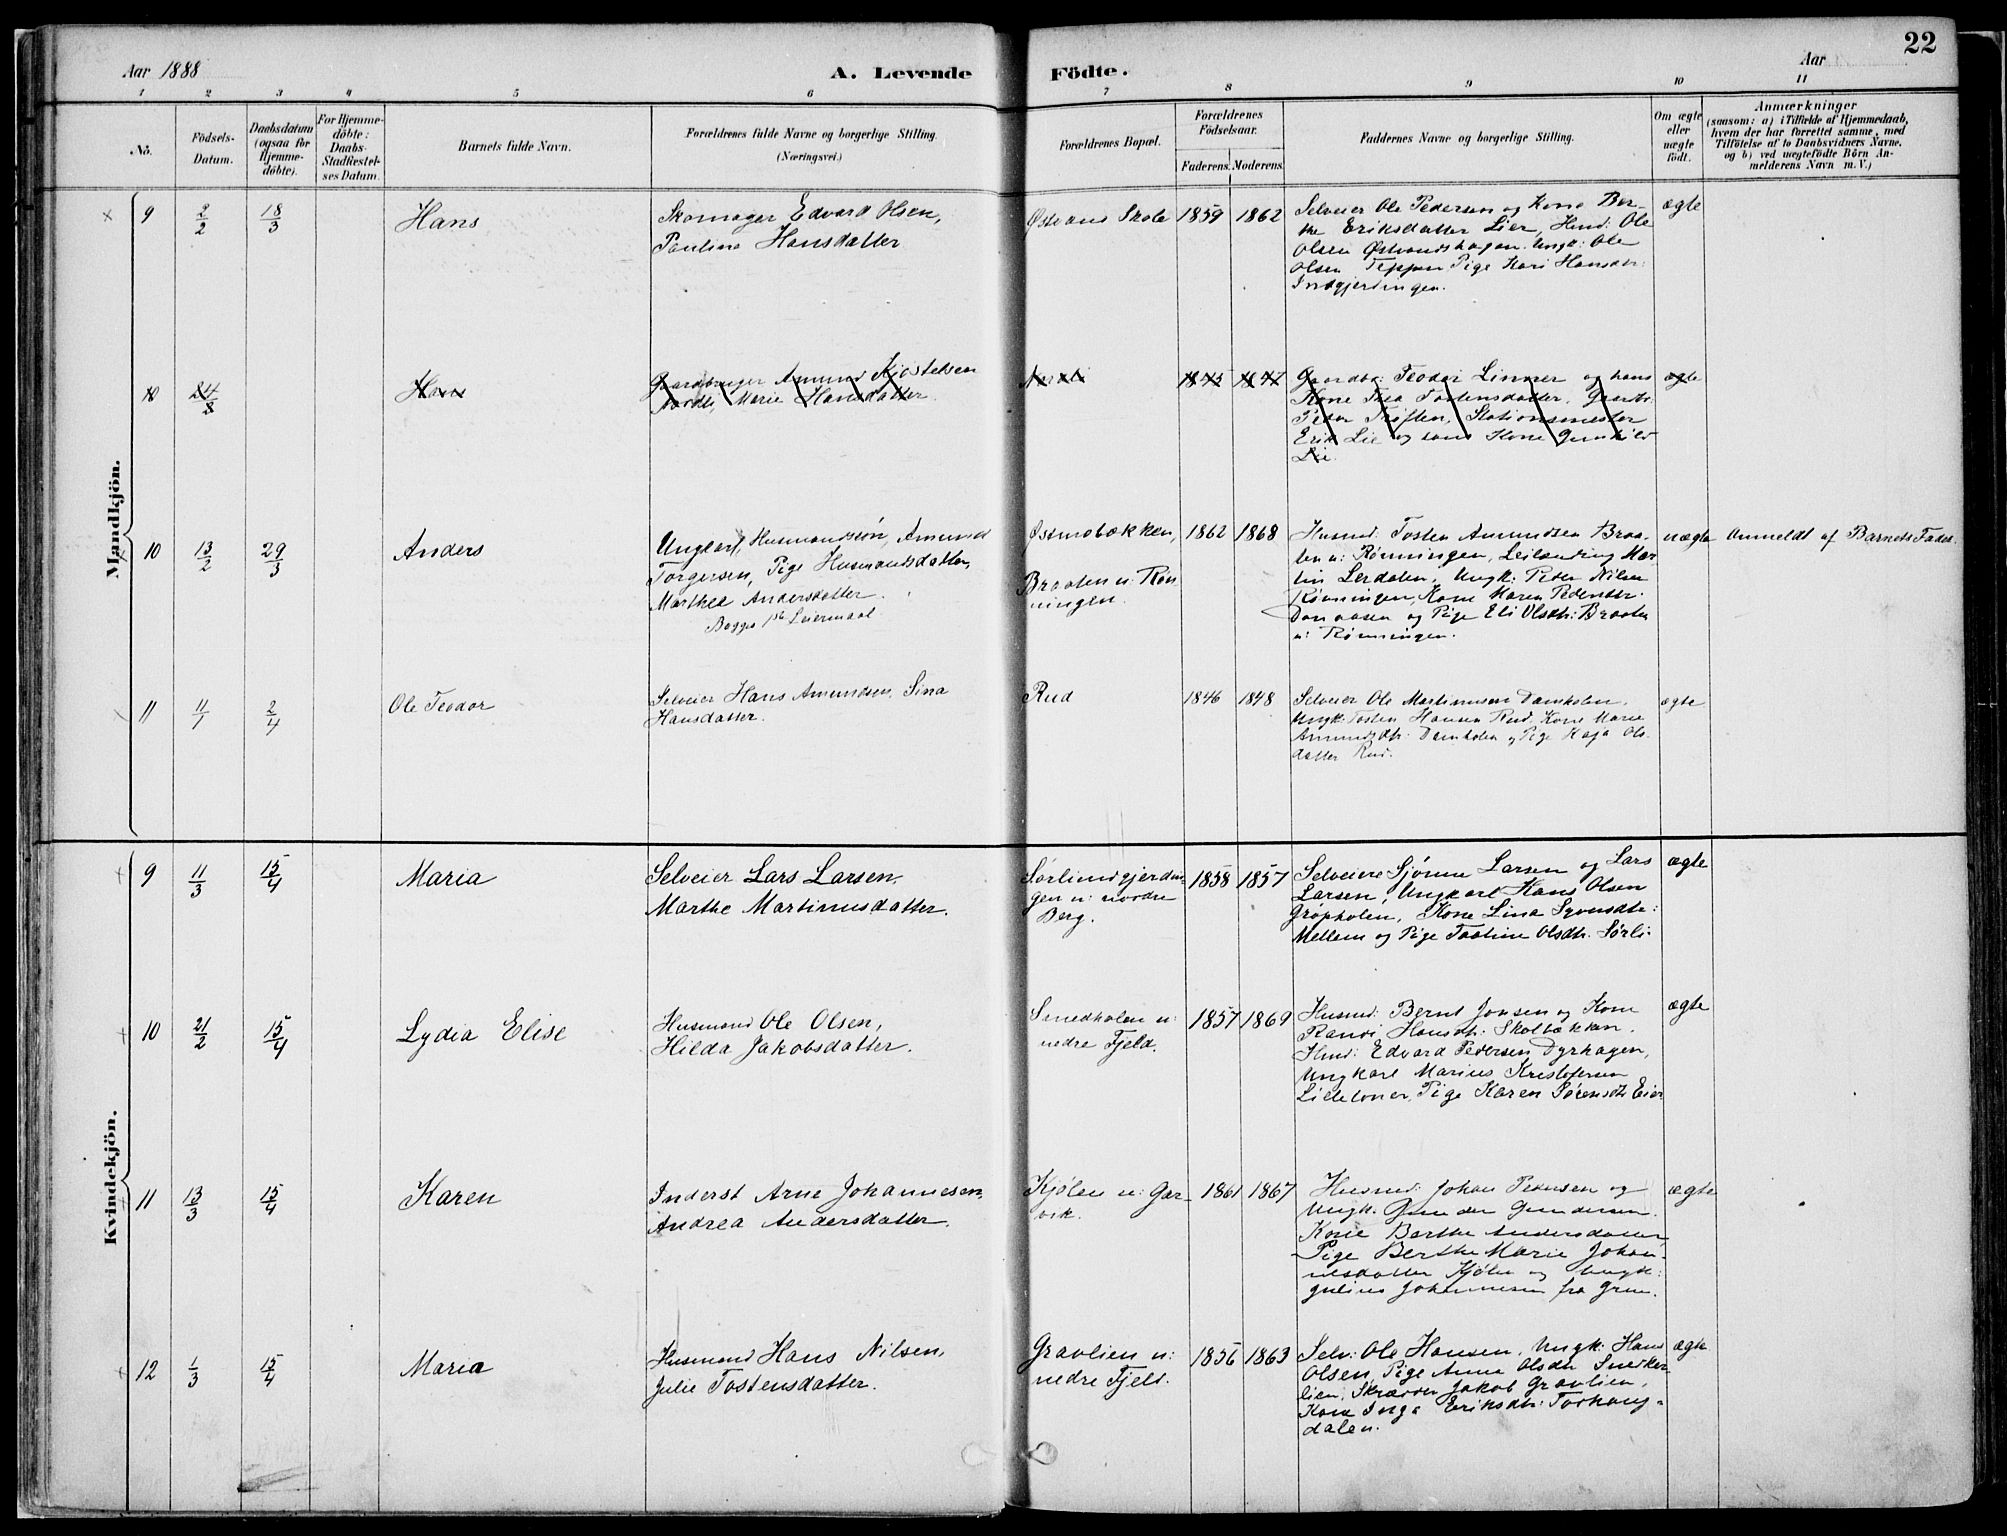 22
Aar 1888
A. Levende Födte.
Aar
1 2 3 4 5 6 7 8 9 10 11
No.
Födsels-
Datum.
Daabsdatum
(ogsaa for
Hjemme-
döbte).
For Hjemme-
döbte:
Daabs-
Stadfæstel-
ses Datum.
Barnets fulde Navn.
Forældrenes fulde Navne og borgerlige Stilling.
(Næringsvei.)
Forældrenes Bopæl.
Forældrenes
Födselsaar.
Faderens. Moderens.
Faddernes Navne og borgerlige Stilling.
Om ægte
eller
uægte
födt.
Anmærkninger
(saasom: a) i Tilfælde af Hjemmedaab,
hvem der har forrettet samme, med
Tilföielse af to Daabsvidners Navne,
og b) ved uægtefödte Börn An-
melderens Navn m. V.)
Mandkjön.
9
2/2
18/3
Hans
Skomager Edvard Olsen,
Pauline Hansdatter
Østvans Skole
1859
1862
Selveier Ole Pedersen og Kone Ber-
the Eriksdatter Lier, Hmd: Ole
Olsen Østvandshagen. Ungk: Ole
Olsen Teppen, Pige Kari Hansdtr:
Indgjerdingen.
ægte
10
24/8
Hans
Gaardbruger Amund Kjøstelsen
Nordli, Marie Hansdatter
1845
Gaardbr: Teodor Linner og hans
Kone Thea Tostensdatter, Gaardb:
Peder Triften, Stationsmester
Erik Lie og hans Kone Gunhild
Lie.
ægte
10
13/2
29/3
Anders
Ungkarl, Husmandssøn, Amund
Torgersen, Pige Husmandsdatter,
Marthea Andersdatter.
Begges 1ste Leiermaal
Østmobækken,
Braaten u: Røn
ningen.
1862
1868
Husmd: Tosten Amundsen Braa-
ten u: Rønningen, Leilænding Mar
tin Lerdalen, Ungk: Peder Nilsen
Rønningen, Kone Maren Pedersdtr.
og Pige Eli Olsdtr: Braaten
u: Rønningen.
uægte
Anmeldt af Barnets Fader.
11
11/1
2/4
Ole Teodor
Selveier Hans Amundsen, Sina
Hansdatter.
Rud
1846
1848
Selveier Ole Martinusen Damholen,
Ungk: Tosten Hansen Rud, Kone Marie
Amundsdtr: Damholen og Pige Kaja Ols-
datter Rud.
ægte
Kvindekjön.
9
11/3
15/4
Maria
Selveier Lars Larsen,
Marthe Martinusdatter.
Sørliindgjerdin-
gen u: nordre
Berg.
1858
1857
Selveiere Sjønne Larsen og Lars
Larsen, Ungkarl Hans Olsen
Gropholen, Kone Lina Svensdtr:
Mellem og Pige Taatine Olsdtr. Sørli.
ægte
10
21/2
15/4
Lydia Elise
Husmand Ole Olsen,
Hilda Jakobsdatter.
Smedholen u:
nedre Fjeld.
1857
1869
Husmd: Bernt Jonsen og Kone
Randi Hansdtr: Skolbækken,
Hmd: Edvard Pedersen Dyrhagen,
Ungkarl Marius Kristofersen
Lilleloner, Pige Karen Sørensdtr Eier
ægte
11
13/3
15/4
Karen
Inderst Arne Johannesen,
Andrea Andersdatter.
Kjølen u: Gar-
vik.
1861
1867
Husmd: Johan Pedersen og
Ungk. Gunder Gundersen.
Kone Berthe Andersdatter,
Pige Berthe Marie Johan-
nesdatter Kjølen og Ungk:
Julius Johannesen fra Grue.
ægte
12
1/3
15/4
Maria
Husmand Hans Nilsen,
Julie Tostensdatter.
Gravlien u:
nedre Fjeld.
1856
1863
Selv: Ole Hansen, Ungk: Hans
Olsen, Pige Anne Olsdtr Snekker
lien, Skrædder Jakob Gravlien,
Kone Inga Eriksdtr: Torkang-
dalen.
ægte